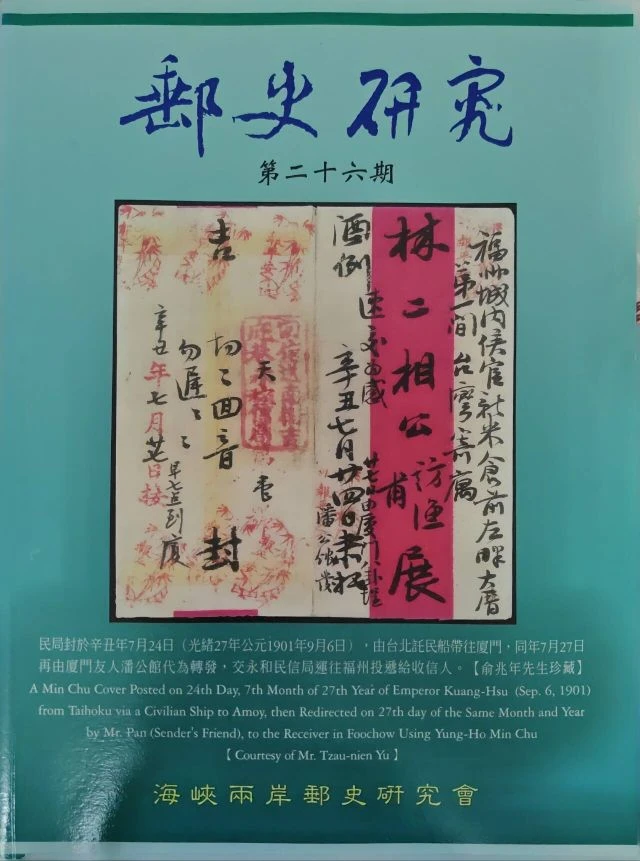 郵史研究
第二十六期
福州城內侯官新米倉前左畔大厝
第一間 台灣寄寓
林二相公甫展
訪漁
酒例 速交為感
辛丑七月廿四日
吉
切二回音
天
封
勿遲二
辛丑年七月廿七日接
民局封於辛丑年7月24日（光緒27年公元1901年9月6日），由台北託民船帶往廈門，同年7月27日
再由廈門友人潘公館代為轉發，交永和民信局運往福州投遞給收信人。【俞兆年先生珍藏】
A Min Chu Cover Posted on 24th Day, 7th Month of 27th Year of Emperor Kuang-Hsu (Sep. 6, 1901)
from Taihoku via a Civilian Ship to Amoy, then Redirected on 27th day of the Same Month and Year
by Mr. Pan (Sender's Friend), to the Receiver in Foochow Using Yung-Ho Min Chu
【 Courtesy of Mr. Tzau-nien Yu 】
海峽兩岸郵史研究會